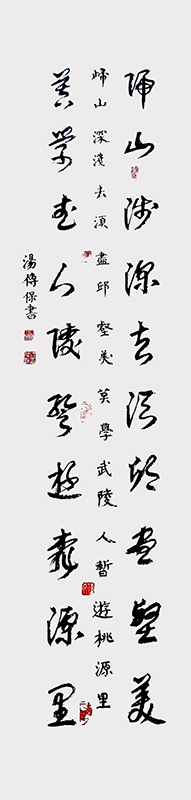 歸山淺深去須邱盡壑美
歸山深淺去須盡邱壑美莫學武陵人暫遊桃源里
莫學武人陵暫遊桃源里
湯傳保書